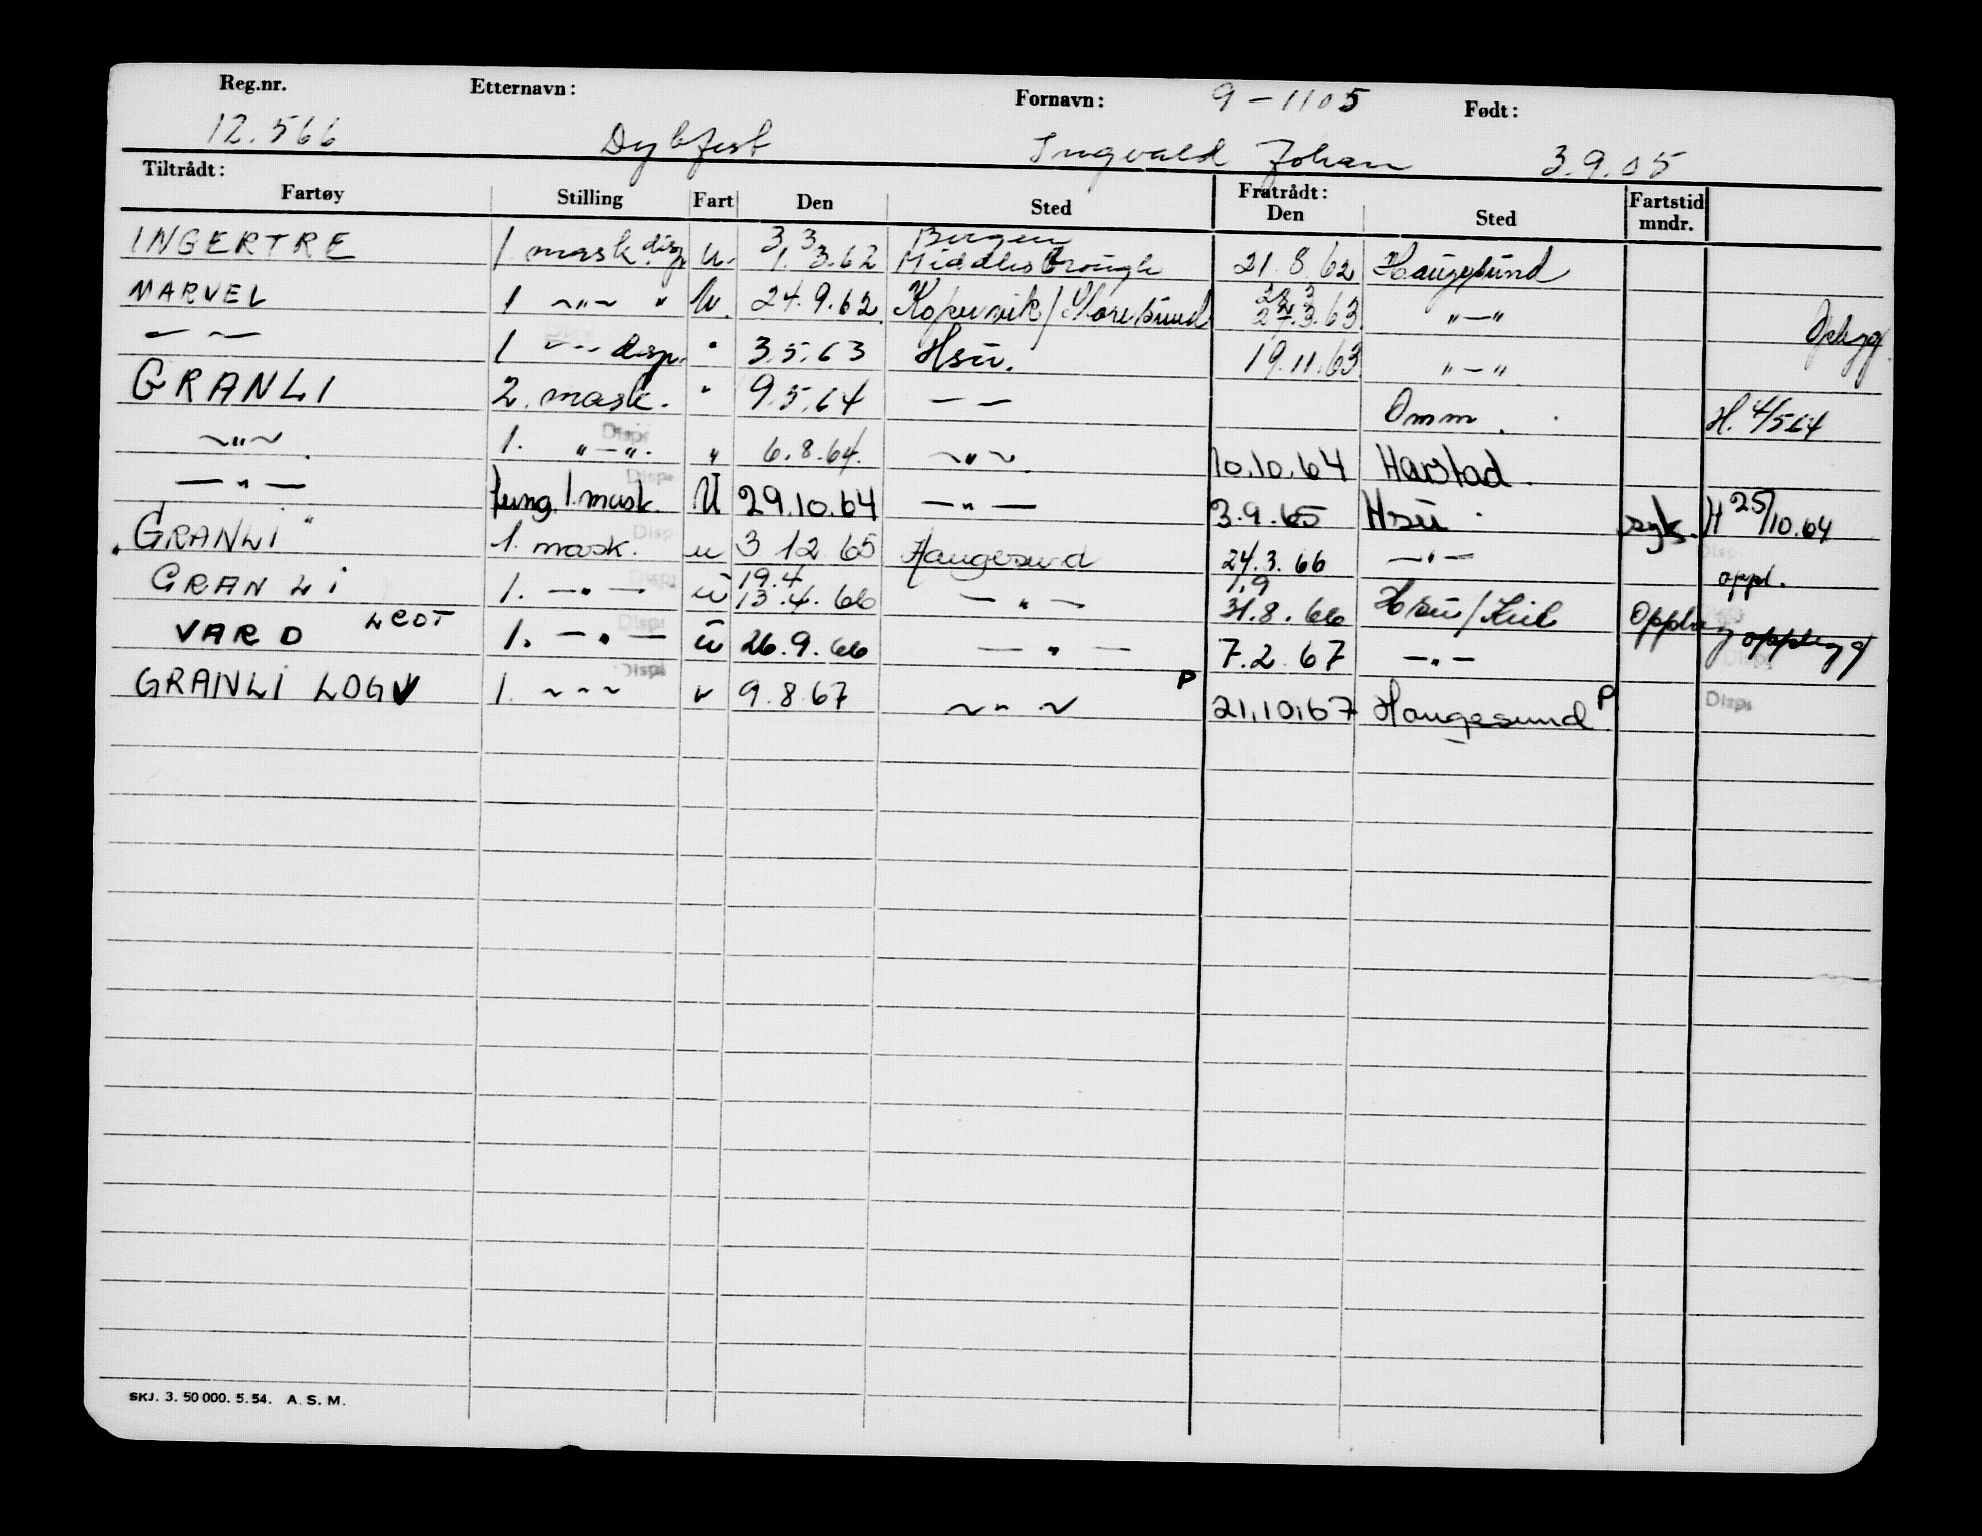 Reg.nr. Etternavn: Fornavn: 9-1105 Født:
12.566 Dybfest Ingvald Johan 3.9.05
Tiltrådt: Fratrådt:
Fartøy Stilling Fart Den Sted Den Sted Fartstid mndr.
3 3 Bergen
INGERTRE 1 mask. disp u. 1. 3.62 Middlesbrough 21.8.62 Haugesund
28 3
MARVEL 1 ~"~ " U. 24.9.62 Kopervik/ 27.3.63 "—" Opbygg
— ~ 1 ~ disp. " 3.5.63 Hsu. 19.11.63 "—"
GRANLI 2. mask. " 9.5.64 — — Omm. H. 4/5 64
~"~. 1. "—". Disp " 6.8.64. ~"~. 10.10.64 Harstad.
—"— fung. 1. mask. Disp U 29.10.64 —"— 3.9.65 Hsu. syk. H 25/10.64
GRANLI " 1. mask. Disp u 3 12 65 Haugesund 24.3.66 —"— Disp oppl.
19.4 1.9
GRANLI 1. —"— Disp u 13.4.66 —"— 31.8.66 Hsu/Kiel Opplag opplegg
VARD LCOT 1. —"— Disp u 26.9.66 —"— 7.2.67 —"— Disp
GRANLI LOGV 1. ~"~ Disp v 9.8.67 ~"~ P 21.10.67 Haugesund P Disp
SKJ. 3. 50 000. 5. 54. A. S. M.